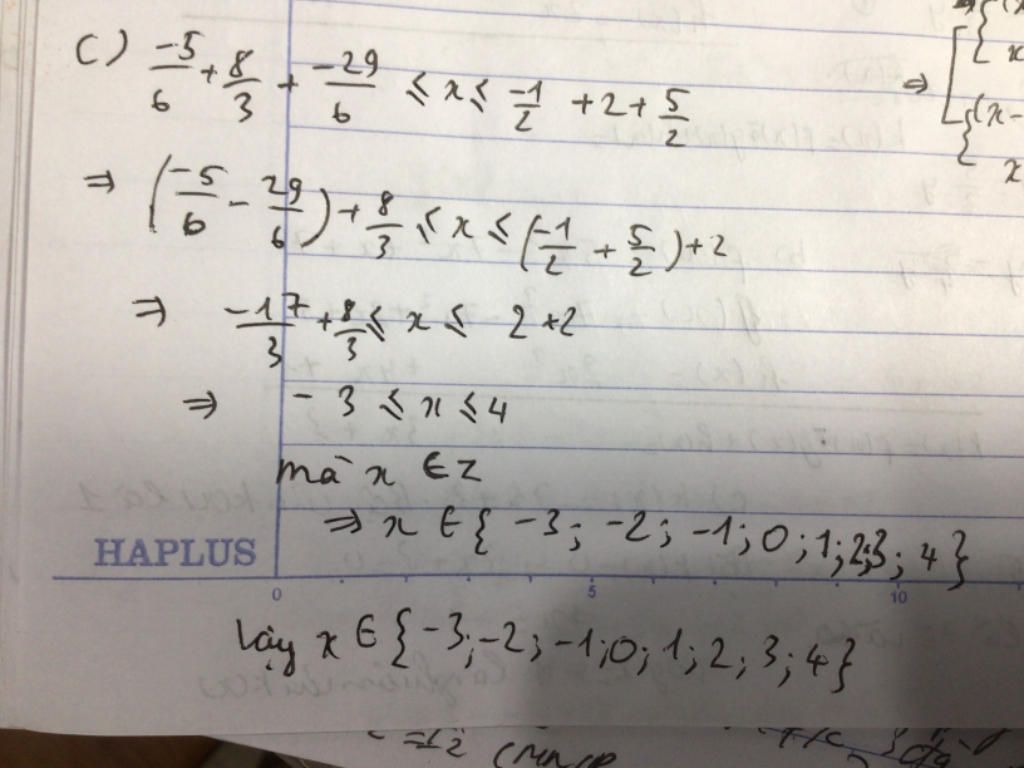 c) -5/6 + 8/3 + -29/6 ≤ x ≤ -1/2 + 2 + 5/2
⇒ (-5/6 - 29/6) + 8/3 ≤ x ≤ (-1/2 + 5/2) + 2
⇒ -17/3 + 8/3 ≤ x ≤ 2 + 2
⇒ -3 ≤ x ≤ 4
mà x ∈ Z
⇒ x ∈ { -3; -2; -1; 0; 1; 2; 3; 4 }
HAPLUS
0 5 10
Vậy x ∈ { -3; -2; -1; 0; 1; 2; 3; 4 }